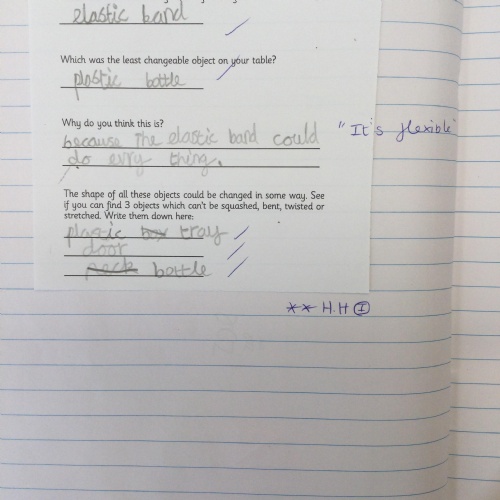 elastic band
Which was the least changeable object on your table?
plastic bottle
Why do you think this is?
because the elastic band could
"It's flexible"
do evry thing.
The shape of all these objects could be changed in some way. See
if you can find 3 objects which can't be squashed, bent, twisted or
stretched. Write them down here:
plastic box tray
door
bottle
** H.H I